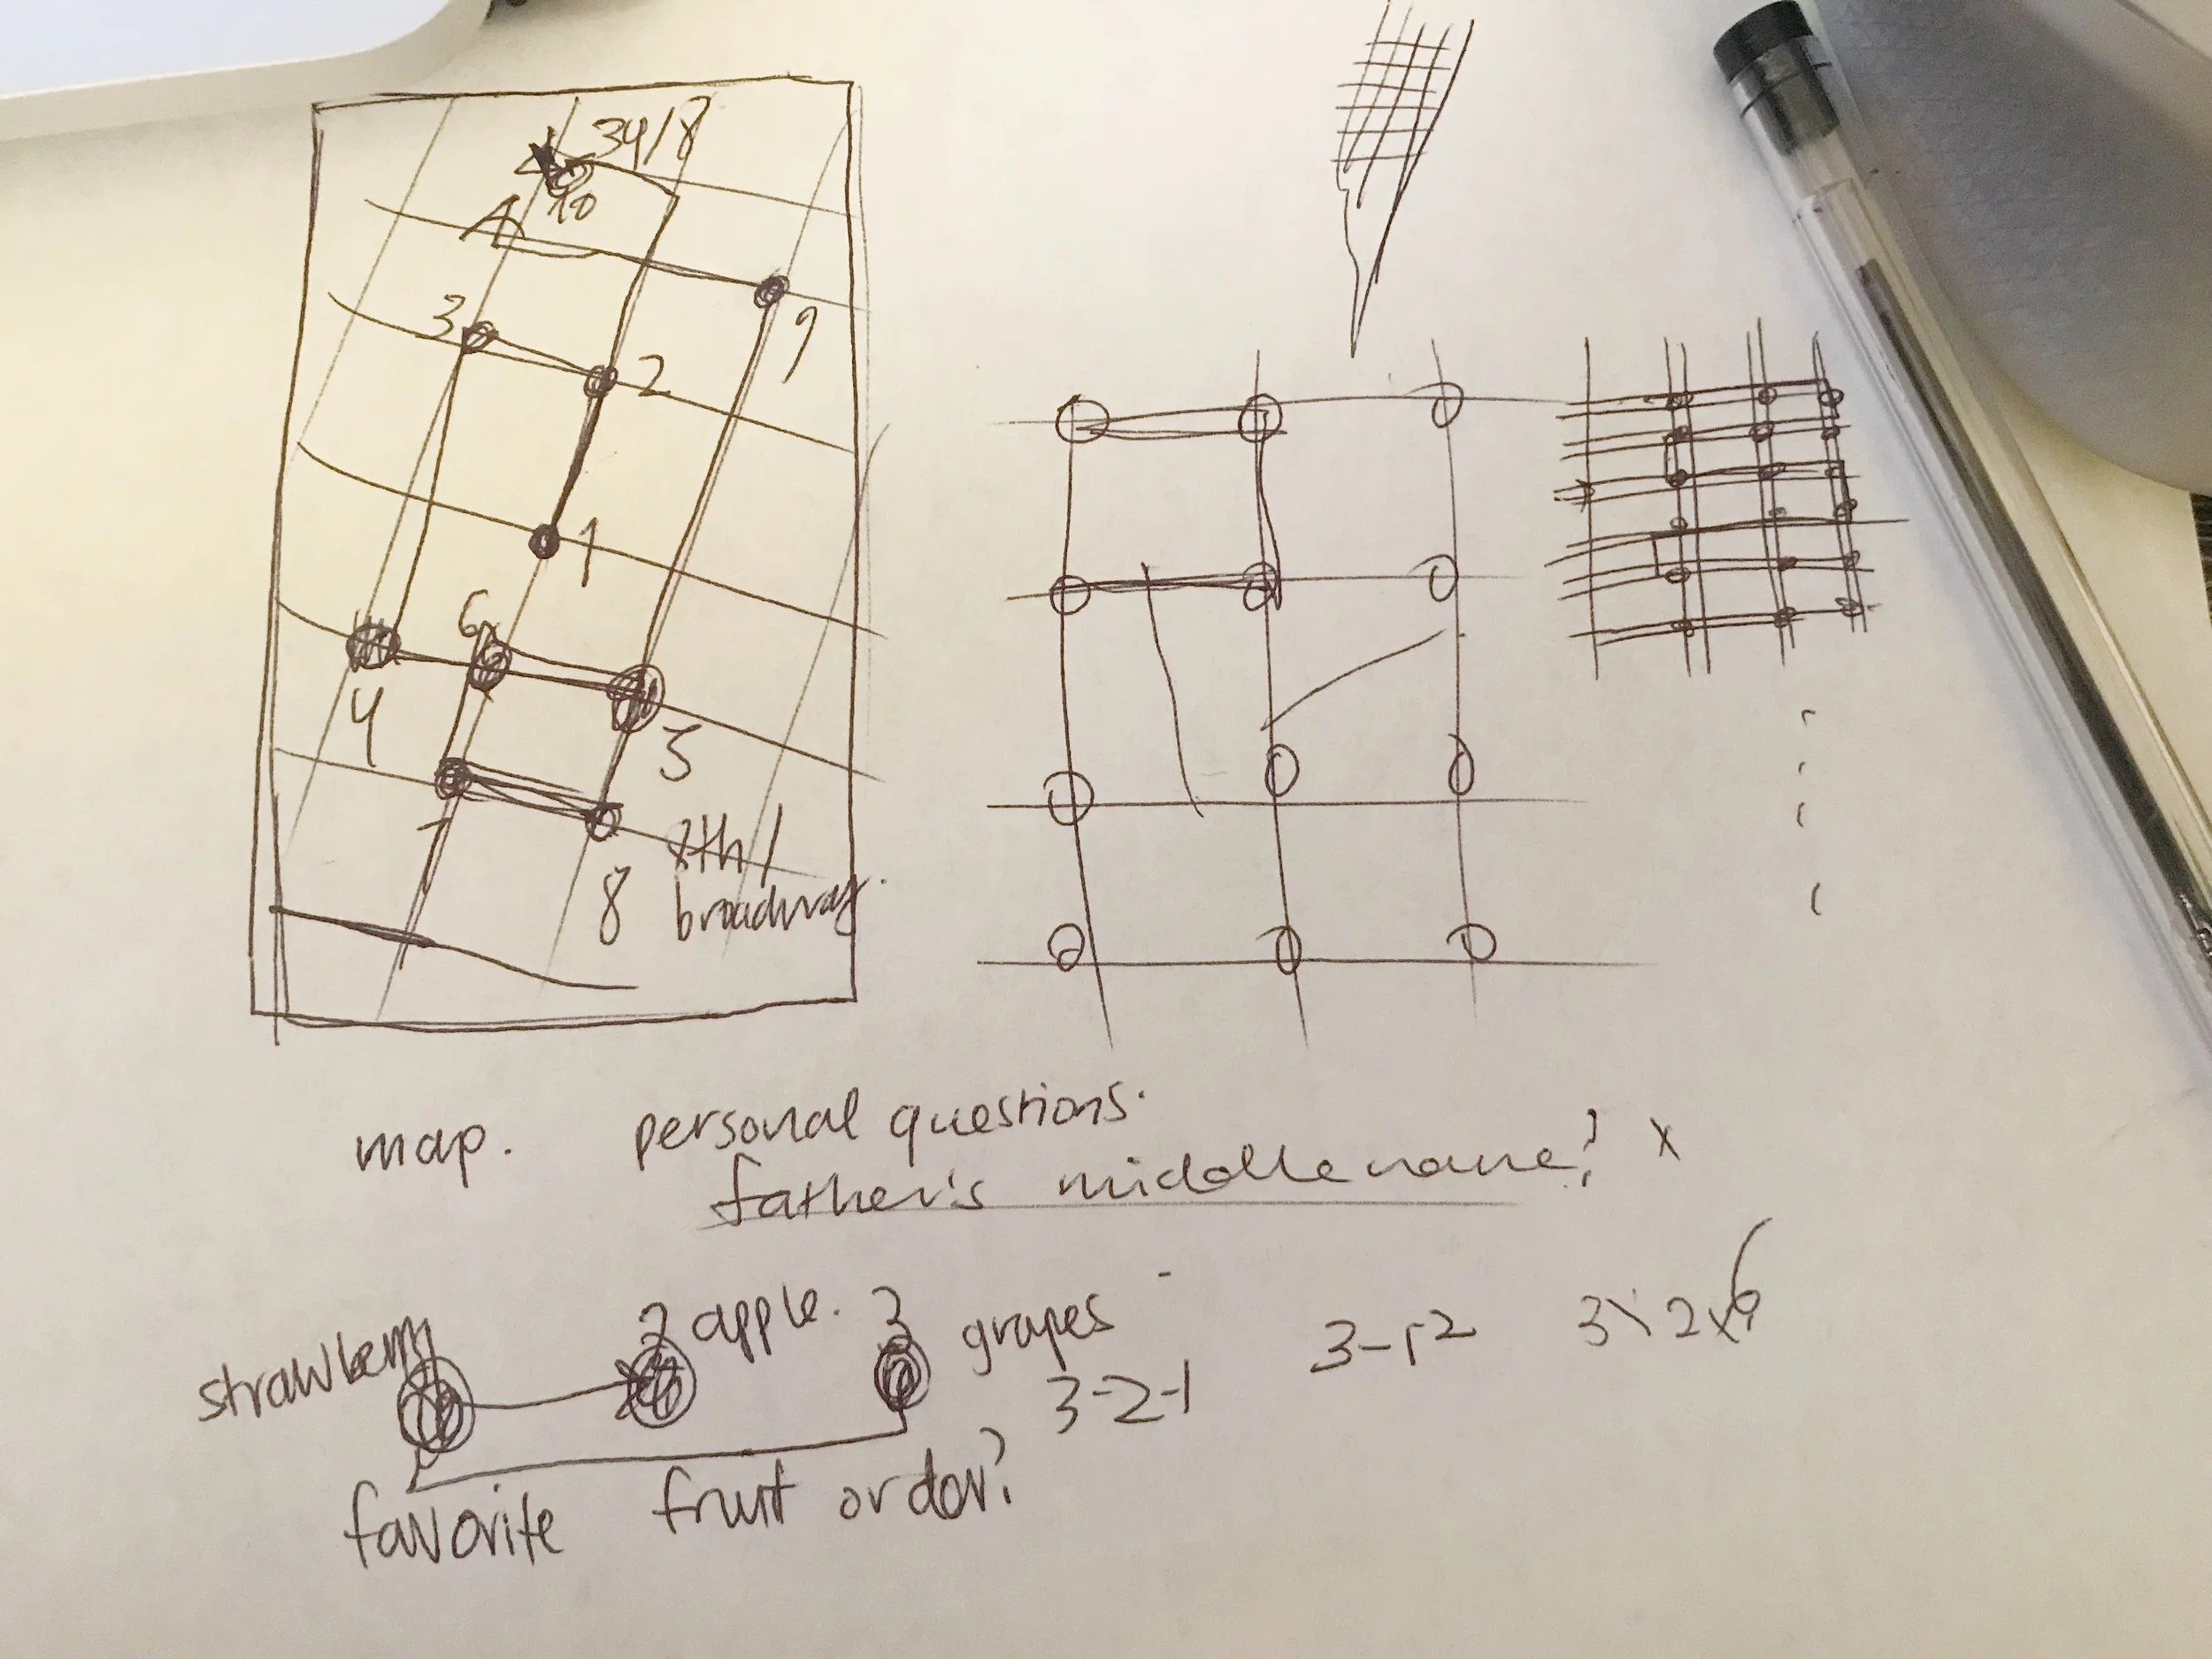 34/8
10
A
3
2
9
1
6
4
5
7
8
8th/
broadway.
map.
personal questions.
father's middle name? x
strawberry
2 apple.
3 grapes
3-2-1
3-1-2
favorite fruit order?